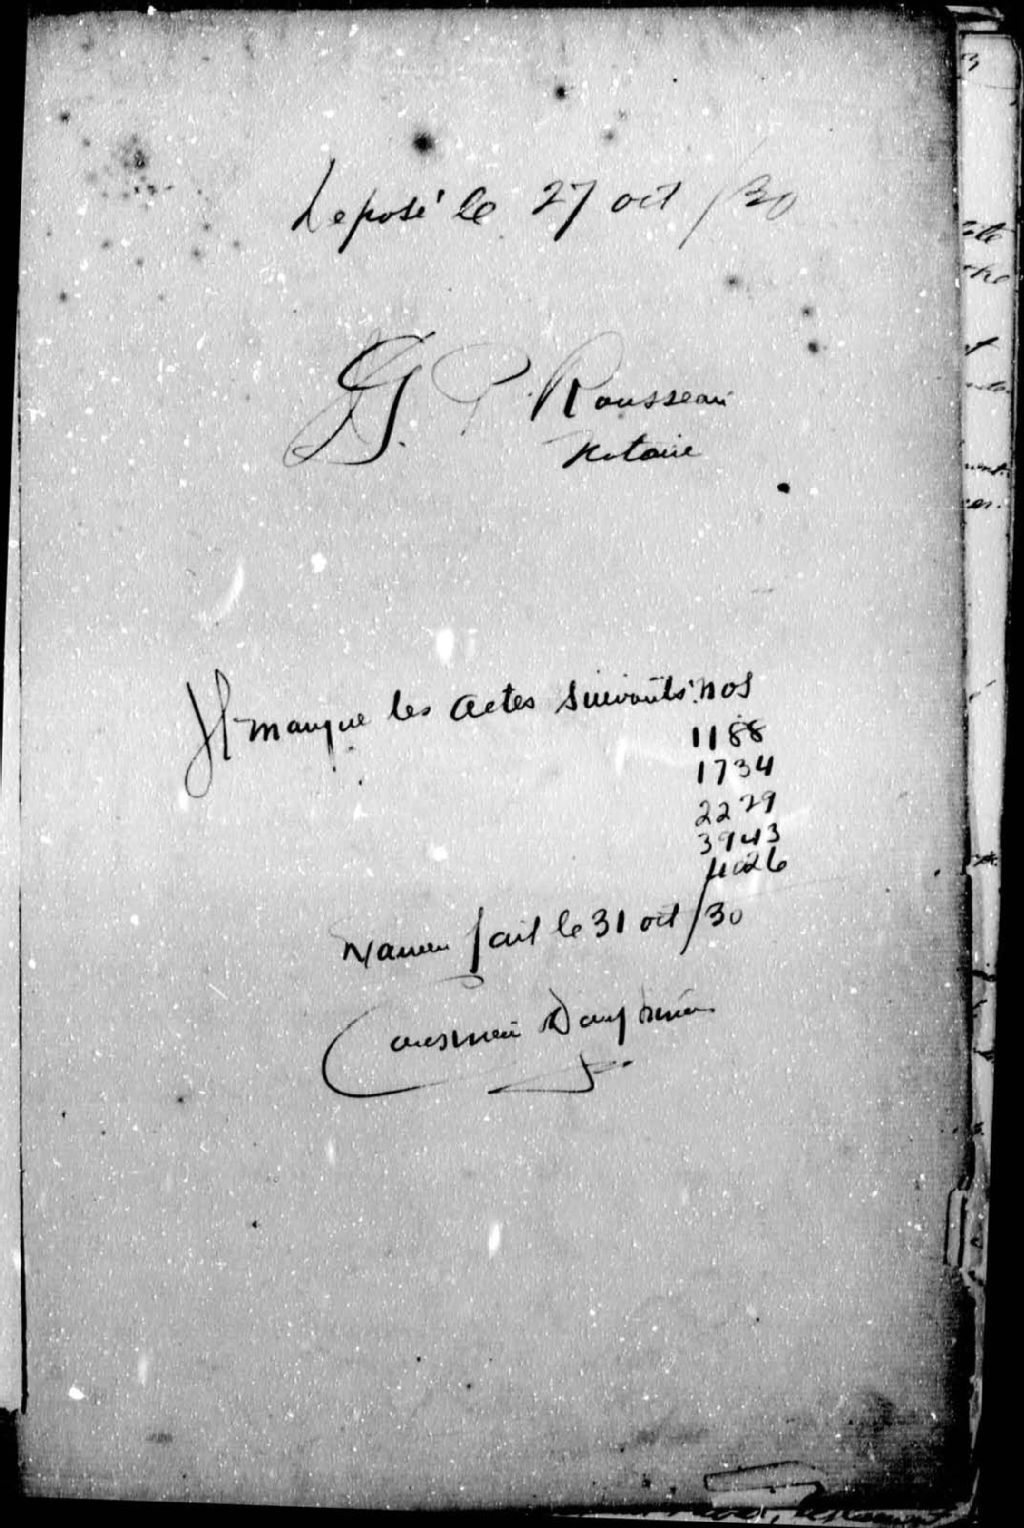 Deposé le 27 oct /30
G. P. Rousseau
Notaire
Il manque les actes suivants: nos
1188
1734
2279
3943
4026
Examen fait le 31 oct /30